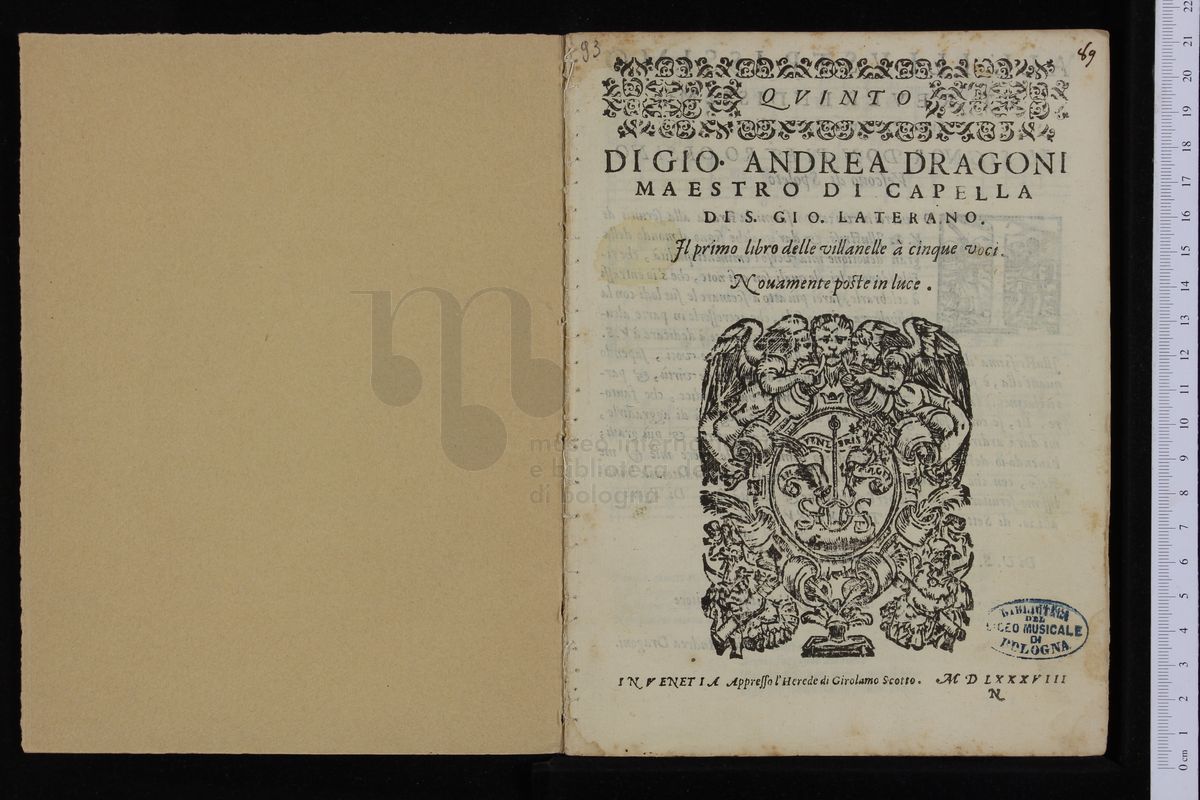 93
89
QVINTO
DI GIO. ANDREA DRAGONI
MAESTRO DI CAPELLA
DI S. GIO. LATERANO.
Il primo libro delle villanelle à cinque voci.
Nouamente poste in luce.
museo interna
e biblioteca de
di bologna
TENEBRIS
S O S
BIBLIOTECA
DEL
LICEO MUSICALE
DI
BOLOGNA
IN VENETIA Appresso l'Herede di Girolamo Scotto. M D LXXXVIII
N
0 cm 1 2 3 4 5 6 7 8 9 10 11 12 13 14 15 16 17 18 19 20 21 22